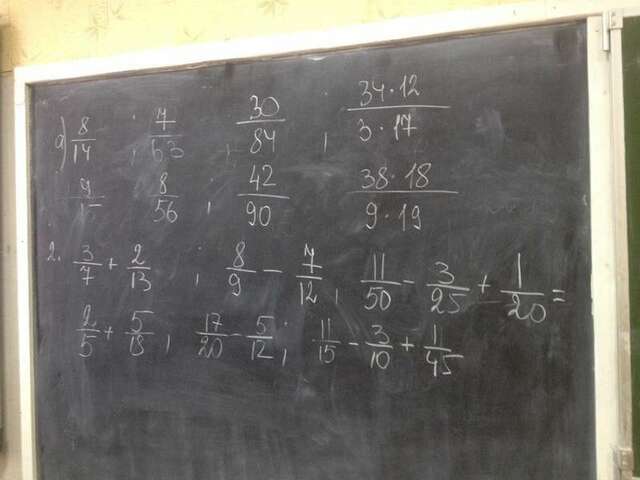 а) 8/14 ; 7/63 ; 30/84 ; 34·12/3·17
9/15 8/56 ; 42/90 38·18/9·19
2. 3/7 + 2/13 ; 8/9 - 7/12, 11/50 - 3/25 + 1/20 =
2/5 + 5/18, 17/20 - 5/12; 11/15 - 3/10 + 1/45